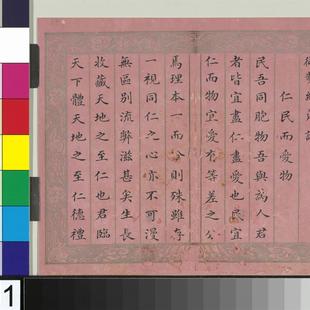 仁民而愛物
民吾同胞物吾與為人君
者皆宜盡仁盡愛也民宜
仁而物宜愛有等差之公
焉理本一而分則殊雖存
一視同仁之心亦不可漫
無區別流弊滋甚矣生長
收藏天地之至仁也君臨
天下體天地之至仁德禮
1